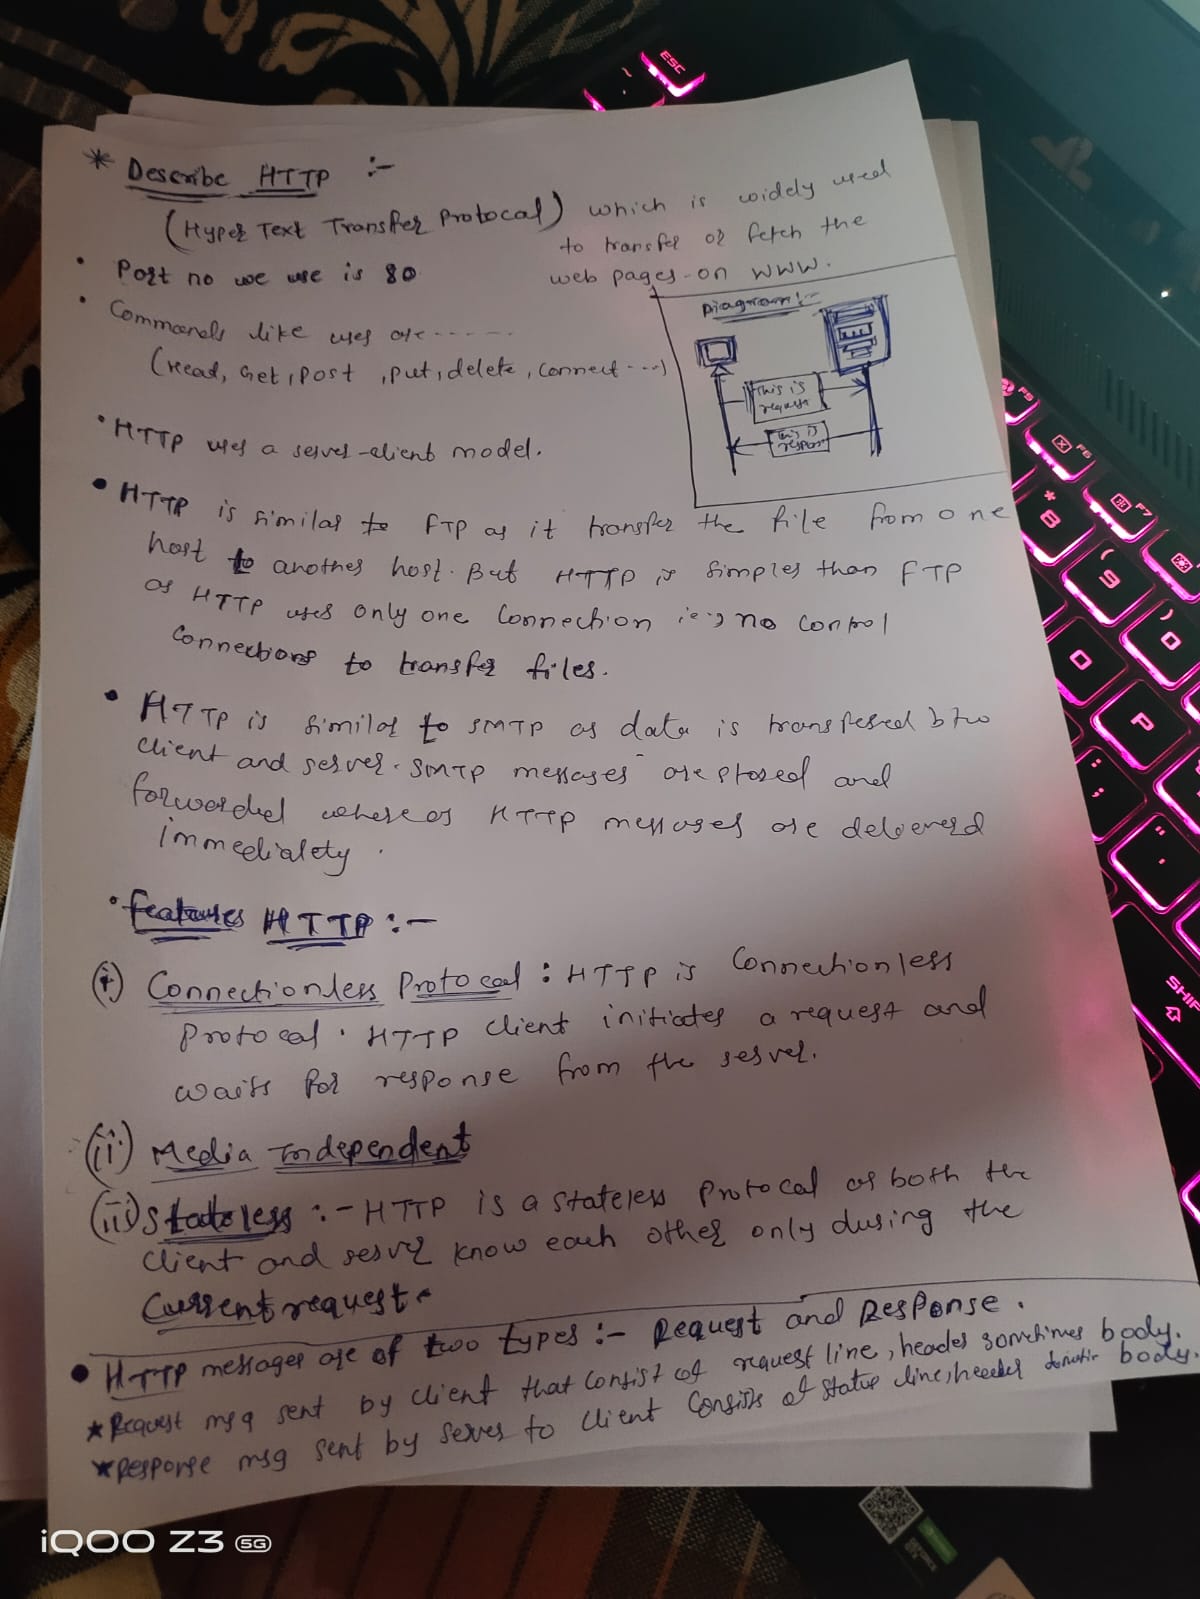 * Describe HTTP :-
(Hyper Text Transfer Protocal) which is widely used
to transfer or fetch the
web pages-on WWW.
• Port no we use is 80
• Commands like uses are ------
(Head, Get, Post, put, delete, connect ---)
Diagram:-
This is
request
this is
respon
• HTTP uses a server-client model.
• HTTP is similar to FTP as it transfer the file from one
host to another host. But HTTP is simpler than FTP
as HTTP uses only one Connection i.e; no control
connections to transfer files.
• HTTP is similar to SMTP as data is transfered btw
client and server. SMTP messages are stored and
forwarded where as HTTP messages are delevered
immedialety.
• features HTTP :-
(i) Connectionless Protocal : HTTP is Connectionless
Protocal. HTTP Client initiates a request and
waits for response from the server.
(ii) Media Independent
(iii) Stateless :- HTTP is a stateless Protocal as both the
client and server know each other only during the
Current request.
• HTTP messages are of two types :- Request and Response.
* Request msg sent by client that consist of request line, header sometimes body.
* Response msg sent by server to client Consists of status line, header body.
ESC
F5
F6
F7
8
*
9
(
)
0
O
P
:
;
"
'
SHIF
iQOO Z3 5G